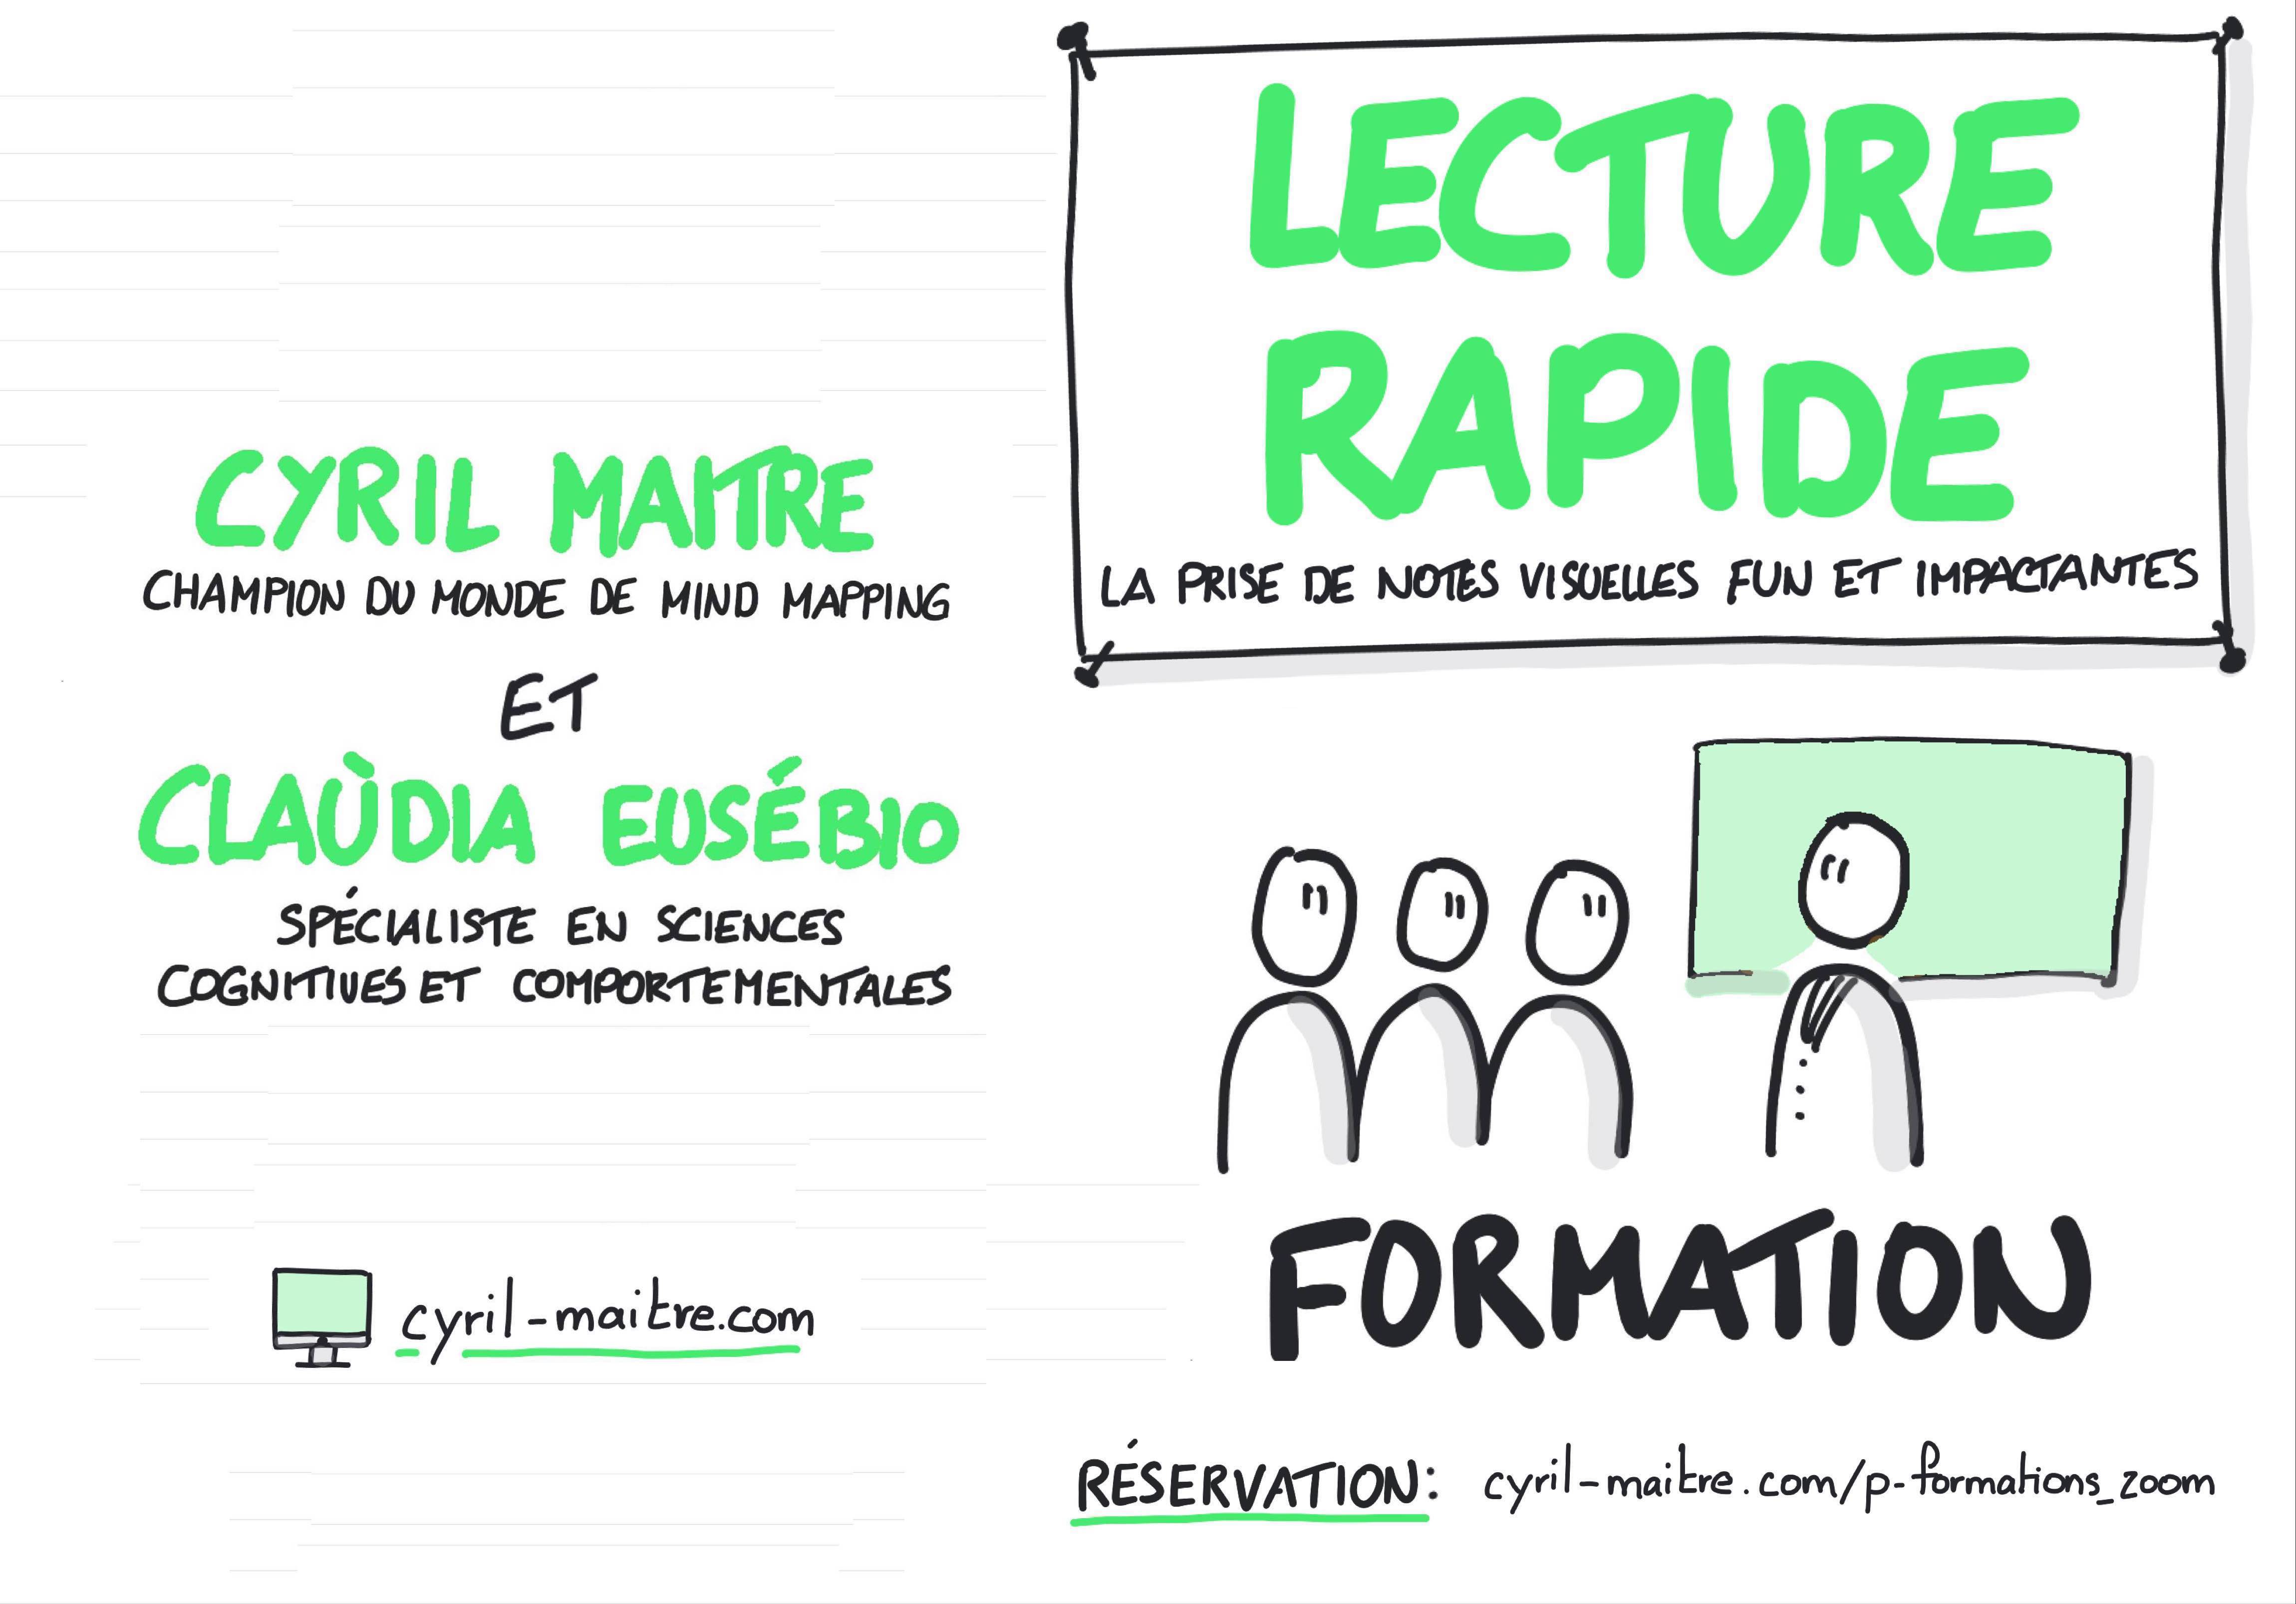 CYRIL MAITRE
CHAMPION DU MONDE DE MIND MAPPING
ET
CLAÙDIA EUSÉBIO
SPÉCIALISTE EN SCIENCES
COGNITIVES ET COMPORTEMENTALES
cyril-maitre.com
LECTURE
RAPIDE
LA PRISE DE NOTES VISUELLES FUN ET IMPACTANTES
FORMATION
RÉSERVATION: cyril-maitre.com/p-formations_zoom